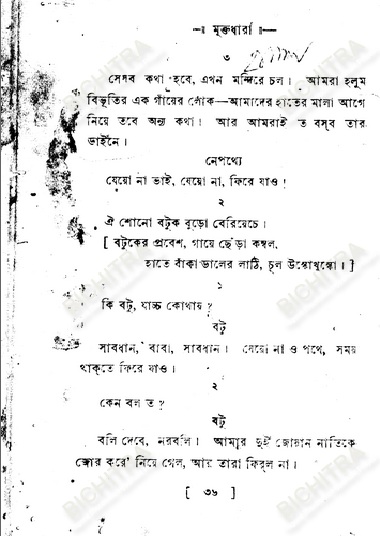 মুক্তধারা
৩
সেসব কথা হবে, এখন মন্দিরে চল। আমরা হলুম
বিভূতির এক গাঁয়ের লোক—আমাদের হাতের মালা আগে
নিয়ে তবে অন্য কথা। আর আমরাই ত বস্‌ব তার
ডাইনে।
নেপথ্যে
যেয়ো না ভাই, যেয়ো না, ফিরে যাও!
২
ঐ শোনো বটুক বুড়ো বেরিয়েচে।
[ বটুকের প্রবেশ, গায়ে ছেঁড়া কম্বল,
হাতে বাঁকা ডালের লাঠি, চুল উস্কোখুস্কো। ]
১
কি বটু, যাচ্চ কোথায়?
বটু
সাবধান, বাবা, সাবধান। যেয়ো না ও পথে, সময়
থাক্‌তে ফিরে যাও।
২
কেন বল ত?
বটু
বলি দেবে, নরবলি। আমার দুই জোয়ান নাতিকে
জোর করে' নিয়ে গেল, আর তারা ফির্‌ল না।
[ ৩৬ ]
BICHITRA